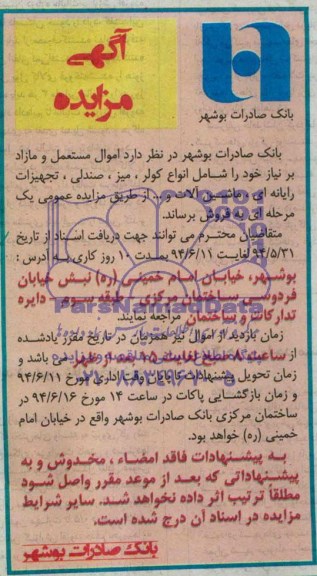 آگهی
مزایده
بانک صادرات بوشهر
بانک صادرات بوشهر در نظر دارد اموال مستعمل و مازاد
بر نیاز خود را شامل انواع کولر ، میز ، صندلی ، تجهیزات
رایانه ای ، ماشین آلات و... از طریق مزایده عمومی یک
مرحله ای به فروش برساند.
متقاضیان محترم می توانند جهت دریافت اسناد از تاریخ
۹۴/۵/۳۱ لغایت ۹۴/۶/۱۱ بمدت ۱۰ روز کاری به آدرس :
بوشهر، خیابان امام خمینی (ره) نبش خیابان
فردوسی ساختمان مرکزی طبقه سوم دایره
تدارکات و ساختمان مراجعه نمایند.
زمان بازدید از اموال نیز همزمان در تاریخ مقرر یادشده
از ساعت ۸ صبح لغایت ۱۵ بعد از ظهر می باشد و
زمان تحویل پیشنهادات تا پایان وقت اداری مورخ ۹۴/۶/۱۱
و زمان بازگشایی پاکات در ساعت ۱۴ مورخ ۹۴/۶/۱۶ در
ساختمان مرکزی بانک صادرات بوشهر واقع در خیابان امام
خمینی (ره) خواهد بود.
به پیشنهادات فاقد امضاء ، مخدوش و به
پیشنهاداتی که بعد از موعد مقرر واصل شود
مطلقاً ترتیب اثر داده نخواهد شد. سایر شرایط
مزایده در اسناد آن درج شده است.
بانک صادرات بوشهر